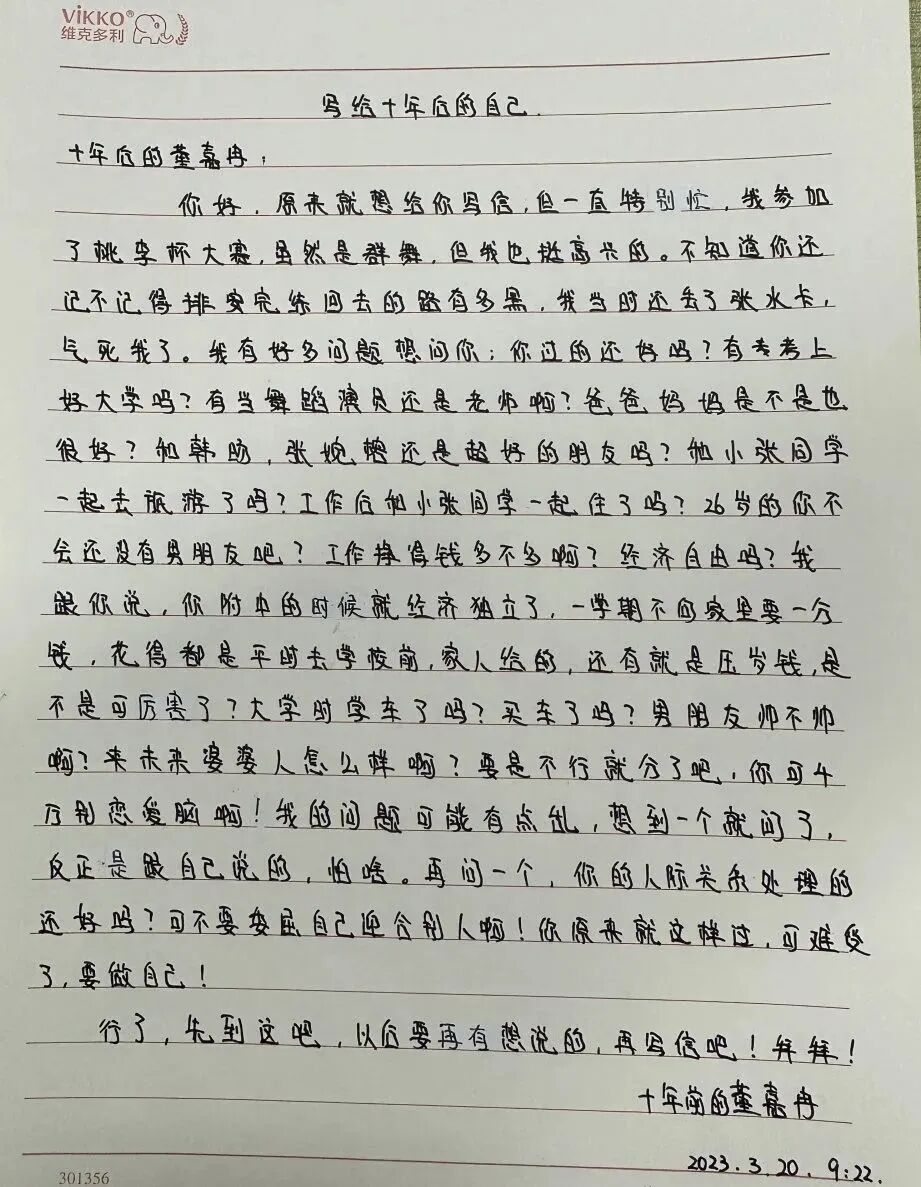 ViKKO®
维克多利
写给十年后的自己.
十年后的董嘉冉：
你好，原来就想给你写信，但一直特别忙，我参加
了桃李杯大赛，虽然是群舞，但我也挺高兴的。不知道你还
记不记得排练完练回去的路有多黑，我当时还丢了张水卡，
气死我了。我有好多问题想问你：你过的还好吗？有考上
好大学吗？有当舞蹈演员还是老师啊？爸爸妈妈是不是也
很好？和韩旸，张婉还是超好的朋友吗？和小张同学
一起去旅游了吗？工作后和小张同学一起住了吗？26岁的你不
会还没有男朋友吧？工作挣得钱多不多啊？经济自由吗？我
跟你说，你附中的时候就经济独立了，一学期不向家里要一分
钱，花得都是平时去学校前，家人给的，还有就是压岁钱，是
不是可厉害了？大学时学车了吗？买车了吗？男朋友帅不帅
啊？来未来婆婆人怎么样啊？要是不行就分了吧，你可千
万别恋爱脑啊！我的问题可能有点乱，想到一个就问了，
反正是跟自己说的，怕啥。再问一个，你的人际关系处理的
还好吗？可不要委屈自己迎合别人啊！你原来就这样过，可难受
了，要做自己！
行了，先到这吧，以后要再有想说的，再写信吧！拜拜！
十年前的董嘉冉
2023.3.20.9:22.
301356